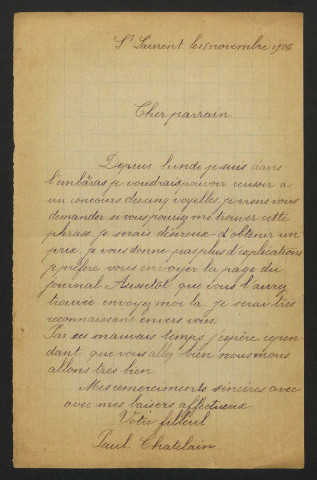 St Laurent le 15 novembre 1906
Cher parrain
Depuis lundi je suis dans
l'embâras je voudrais pouvoir reussir a
un concours des cinq voyelles, je viens vous
demander si vous pouriez me trouver cette
phrase, je serais désireux d'obtenir un
prix, je vous donne pas plus d'explications
je préfère vous envoyer la page du
journal Aussitôt que vous l'aurez
trouvée envoyez moi la je serai très
reconnaissant envers vous.
Par ses mauvais temps j'espère cepen
dant que vous allez bien nous nous
allons très bien
Mes remerciments sincères avec
avec mes baisers affectueux
Votre filleul
Paul Chatelain